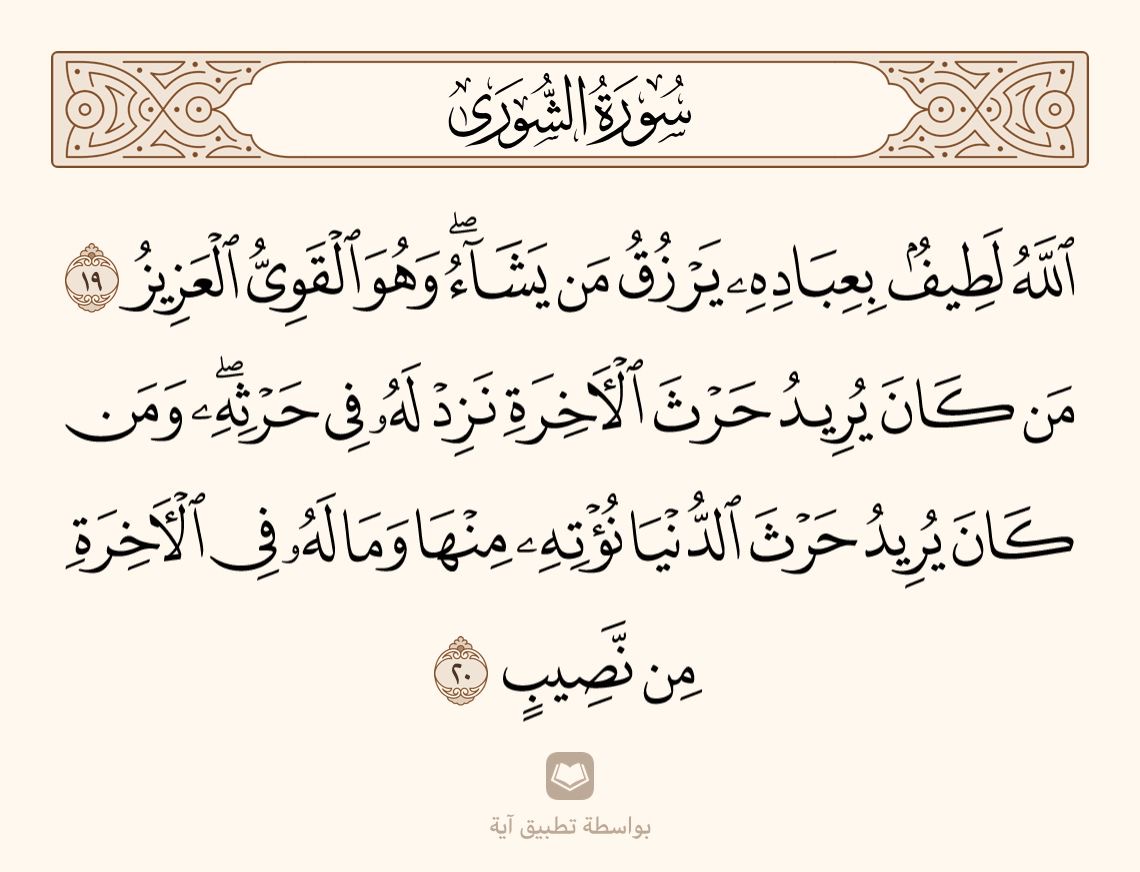 سُورَةُ الشُّورَىٰ
ٱللَّهُ لَطِيفُۢ بِعِبَادِهِۦ يَرۡزُقُ مَن يَشَآءُۖ وَهُوَ ٱلۡقَوِىُّ ٱلۡعَزِيزُ ١٩
مَن كَانَ يُرِيدُ حَرۡثَ ٱلۡأَخِرَةِ نَزِدۡ لَهُۥ فِى حَرۡثِهِۦۖ وَمَن
كَانَ يُرِيدُ حَرۡثَ ٱلدُّنۡيَا نُؤۡتِهِۦ مِنۡهَا وَمَا لَهُۥ فِى ٱلۡأَخِرَةِ
مِن نَّصِيبٍ ٢٠
بواسطة تطبيق آية